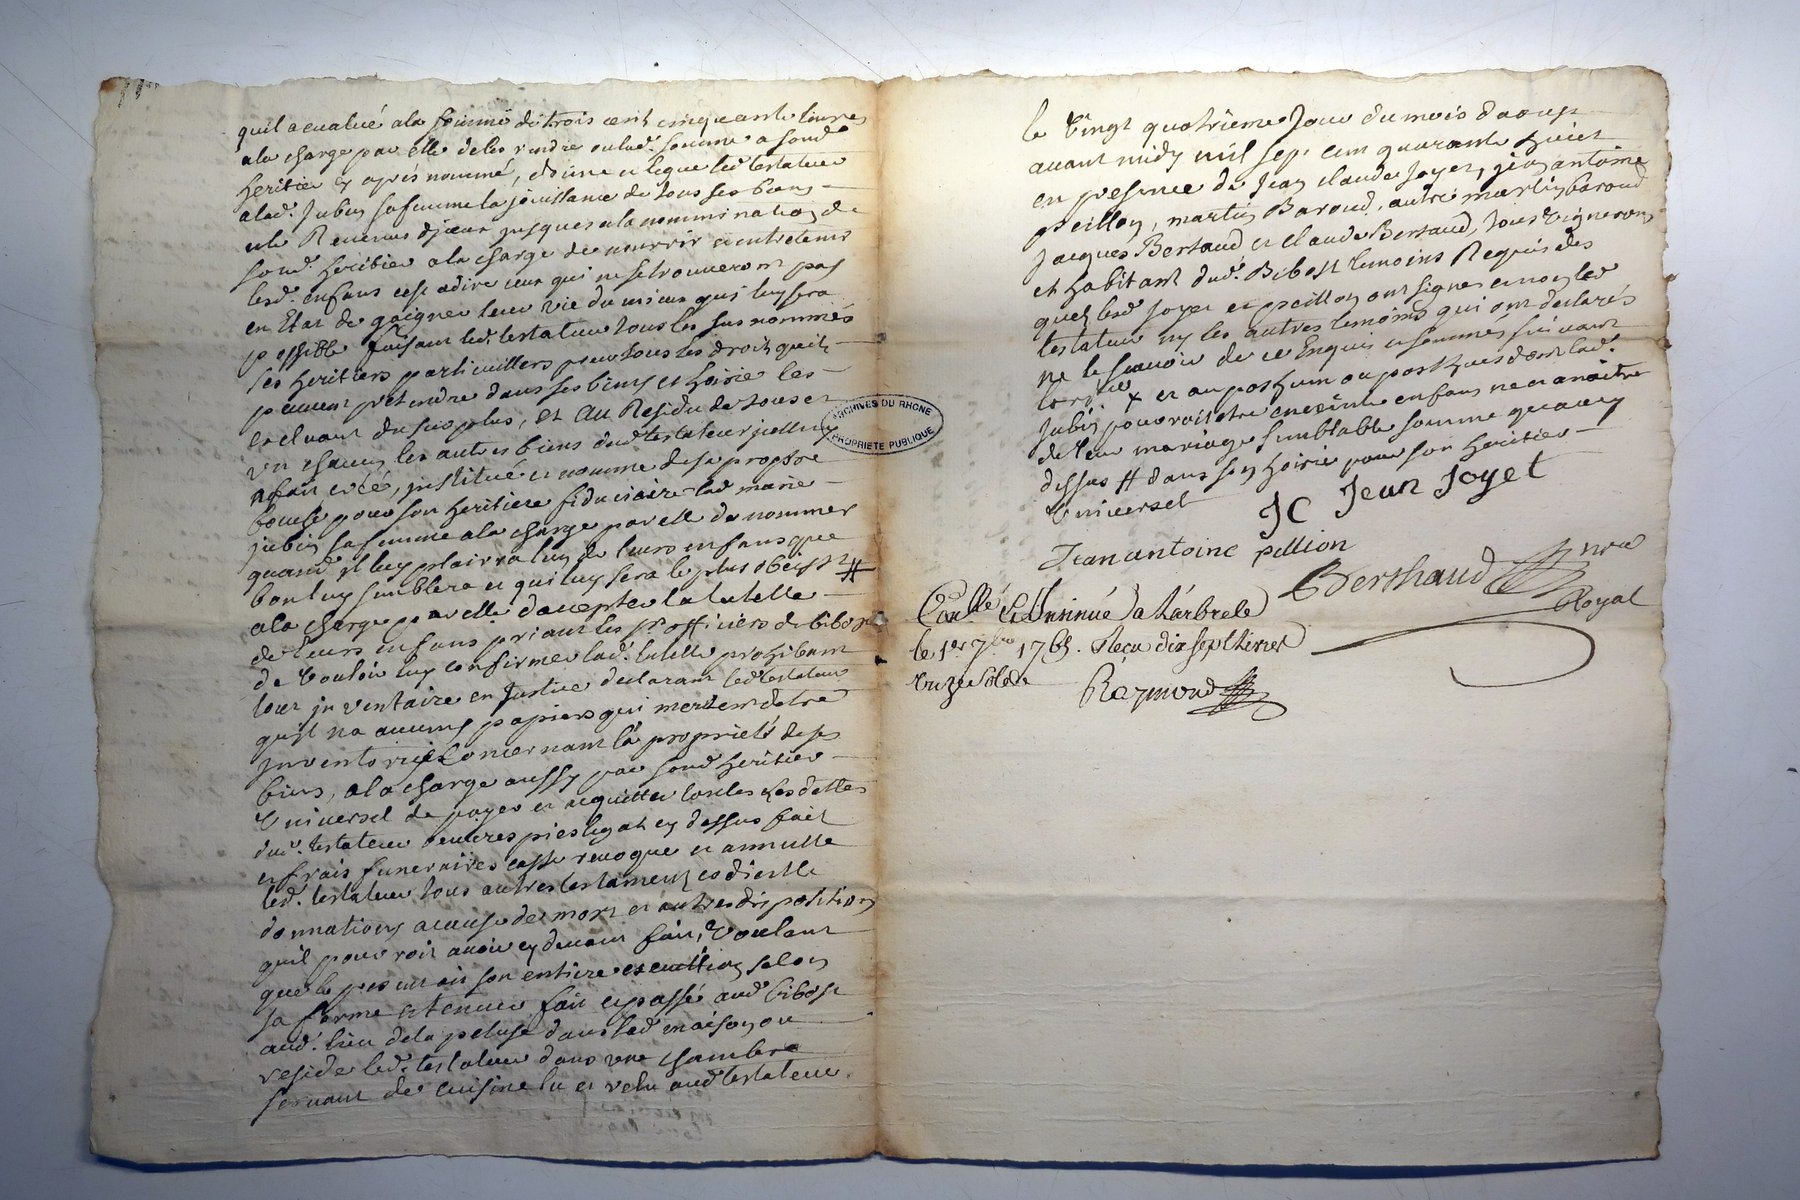 quil a evalué a la somme de trois cent cinquante livres
a la charge par elle de les rendre oulad. somme a sond.
heritier cy apres nommé, donne et legue led. testateur
a lad. Jubin sa femme la jouissance de tous ses biens
et Revenus d'jceux jusques a la nomination de
sond. heritier a la charge de nourrir et entretenir
lesd. enfans cest adire ceux qui ne se trouveront pas
en Etat de gaigner leur vie du mieux qui luy sera
possible faisant led. testateur tous les sus nommés
ses heritiers particuilliers pour tous les droits quils
peuvent pretendre dans ses biens et hoirie les
excluant du surplus, et Au Residu de tous et
un chacun les autres biens dud. testateur jcelluy
a fait créé, jnstitué et nomme de sa propre
bouche pour son heritiere fiduciaire lad. marie
jubin sa femme a la charge par elle de nommer
quand jl luy plairra luy de leurs enfans que
bon luy semblera et qui luy sera le plus obeissant #
a la charge par elle d'accepter la tutelle
de leurs enfans priant les srs officiers de bibost
de vouloir luy confirmer lad. tutelle prohibant
tout jnventaire en Justice declarant led. testateur
qujl na aucuns papiers qui meritent detre
jnventoriés concernant la proprieté de ses
biens, a la charge aussy par sond. heritier
Universel de payer et acquitter toutes les dettes
dud. testateur oeuvres pies legats cy dessus fait
et frais funeraires casse revoque et annulle
led. testateur tous autres testaments codicille
donnations a cause de mort et autres disposition
quil pourroit avoir cy devant fait, Voulant
que le present ait son entiere execution selon
sa forme et teneur fait et passé aud. bibost
aud. lieu de la peluse dans lad. maison ou
reside led. testateur dans une chambre
servant de cuisine lu et relu aud. testateur
le vingt quatrieme Jour du mois daoust
avant midy mil sept cent quarante huict
en presence de Jean claude Joyet, jean antoine
peillon, martin Baroud, autre martin baroud
Jacques Bertaud et claude Bertaud, tous vignerons
et habitant dud. Bibost temoins Requis des
quels led. Joyet et peillon ont signes et non led.
testateur ny les autres temoins qui ont declarés
ne le scavoir de ce Enquis et sommés suivant
lord.ce x et au posthum ou posthumes dont lad.
Jubin pourroit etre enceinte enfans ne et a naitre
de leur mariage semblable somme qu'aux cy
dessus # dans son hoirie pour son heritier
Universel
JC Jean Joyet
Jean antoine pellion
Berthaud nre
Royal
Con.llé & Insinué a Larbrele
le 1er 7bre 1765. Reca dix sept livres
onze sols
Raymond
ARCHIVES DU RHONE
PROPRIETE PUBLIQUE